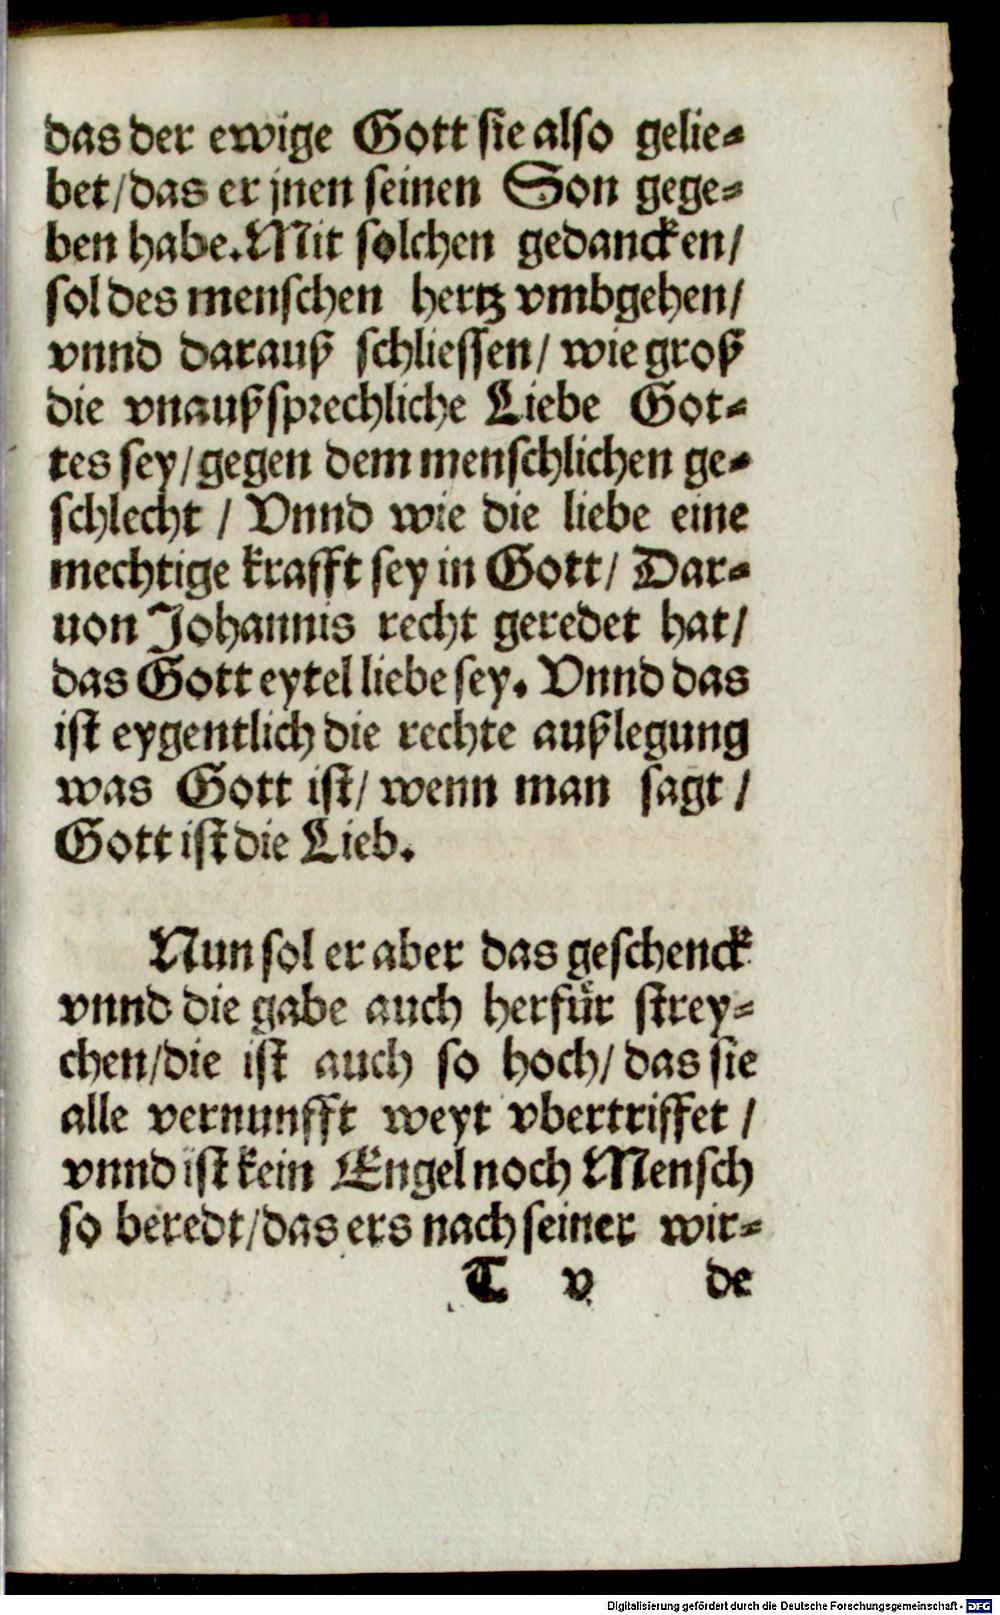 das der ewige Gott sie also gelie-
bet/das er jnen seinen Son gege-
ben habe. Mit solchen gedancken/
sol des menschen hertz vmbgehen/
vnnd darauß schliessen/ wie groß
die vnaußsprechliche Liebe Got-
tes sey/gegen dem menschlichen ge-
schlecht / Vnnd wie die liebe eine
mechtige krafft sey in Gott/ Dar-
uon Johannis recht geredet hat/
das Gott eytel liebe sey. Vnnd das
ist eygentlich die rechte außlegung
was Gott ist/ wenn man sagt /
Gott ist die Lieb.
Nun sol er aber das geschenck
vnnd die gabe auch herfür strey-
chen/die ist auch so hoch/ das sie
alle vernunfft weyt vbertriffet /
vnnd ist kein Engel noch Mensch
so beredt/das ers nach seiner wir-
T v de
Digitalisierung gefördert durch die Deutsche Forschungsgemeinschaft - DFG